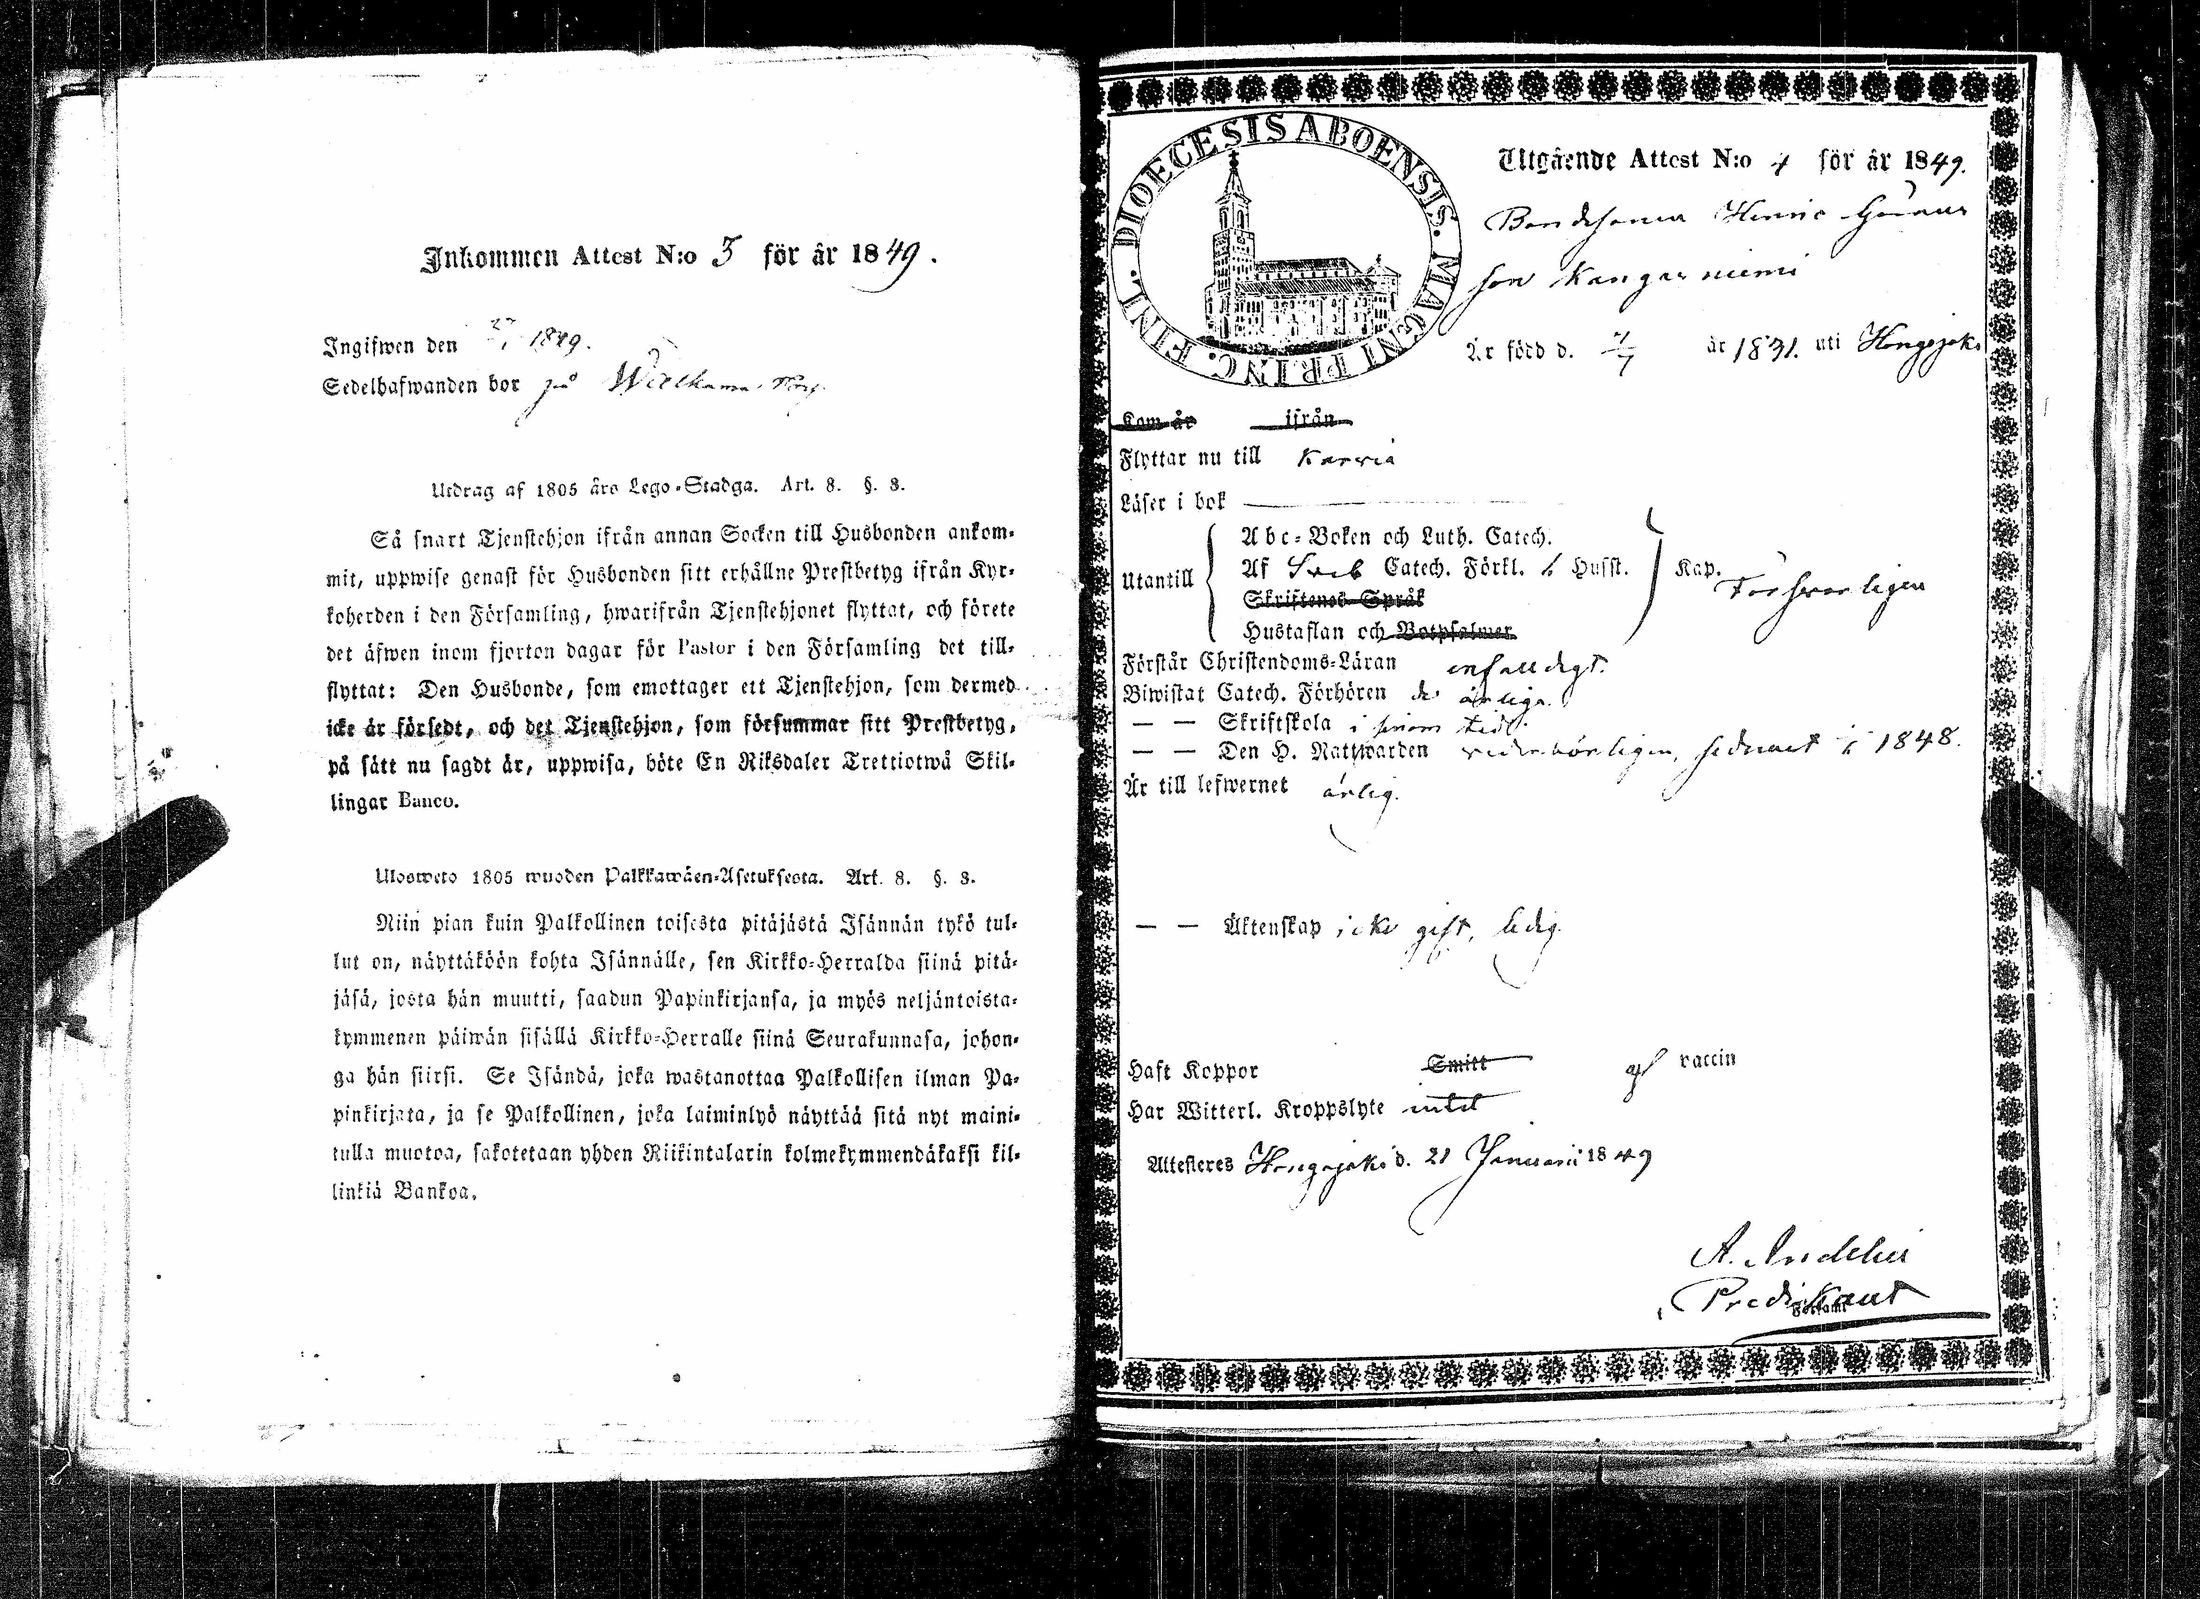 Inkommen Attest N:o 3 för år 1849.
Ingifwen den 27/1 1849.
Sedelhafwanden bor på
Utdrag af 1805 års Lego-Stadga. Art. 8. §. 3.
Så snart Tjenstehjon ifrån annan Socken till Husbonden ankom-
mit, uppwise genast för Husbonden sitt erhållne Prestbetyg ifrån Kyr-
koherden i den Församling, hwarifrån Tjenstehjonet flyttat, och förete
det äfwen inom fjorton dagar för Pastor i den Församling det till-
flyttat: Den Husbonde, som emottager ett Tjenstehjon, som dermed
icke är försedt, och det Tjenstehjon, som försummar sitt Prestbetyg,
på sätt nu sagdt är, uppwisa, böte En Riksdaler Trettiotwå Skil-
lingar Banco.
Ulosweto 1805 wuoden Palkkawäen-Asetuksesta. Art. 8. §. 3.
Niin pian kuin Palkollinen toisesta pitäjästä Isännän tykö tul-
lut on, näyttäköön kohta Isännälle, sen Kirkko-Herralda siinä pitä-
jäsä, josta hän muutti, saadun Papinkirjansa, ja myös neljäntoista-
kymmenen päiwän sisällä Kirkko-Herralle siinä Seurakunnasa, johon-
ga hän siirsi. Se Isändä, joka wastanottaa Palkollisen ilman Pa-
pinkirjata, ja se Palkollinen, joka laiminlyö näyttää sitä nyt maini-
tulla muotoa, sakotetaan yhden Riikintalarin kolmekymmendäkaksi kil-
linkiä Bankoa.
DIOECESIS ABOENSIS. MAGNI PRINC. FINL.
Utgående Attest N:o 4 för år 1849.
Bondesonen Henric
son Kangasniemi
Är född d. 4/7 år 1831. uti Hongojoki
Kom år ifrån
Flyttar nu till Karvia
Läser i bok
Utantill
Abc-Boken och Luth. Catech.
Af Sveb Catech. Förkl. Husst.
Skriftenes Språk
Hustaflan och Botpsalmer
Kap. Försvarligen
Förstår Christendoms-Läran enfalldigt.
Biwistat Catech. Förhören de årliga.
— — Skriftskola i sinom tid.
— — Den H. Nattwarden vederbörligen, sednast i 1848.
Är till lefwernet ärlig.
— — Äktenskap icke gift, ledig.
Haft Koppor Smitt af vaccin
Har Witterl. Kroppslyte intet
Attesteres Hongojoki d. 21 Januari 1849
A. Indelin
Predikant
Församl.